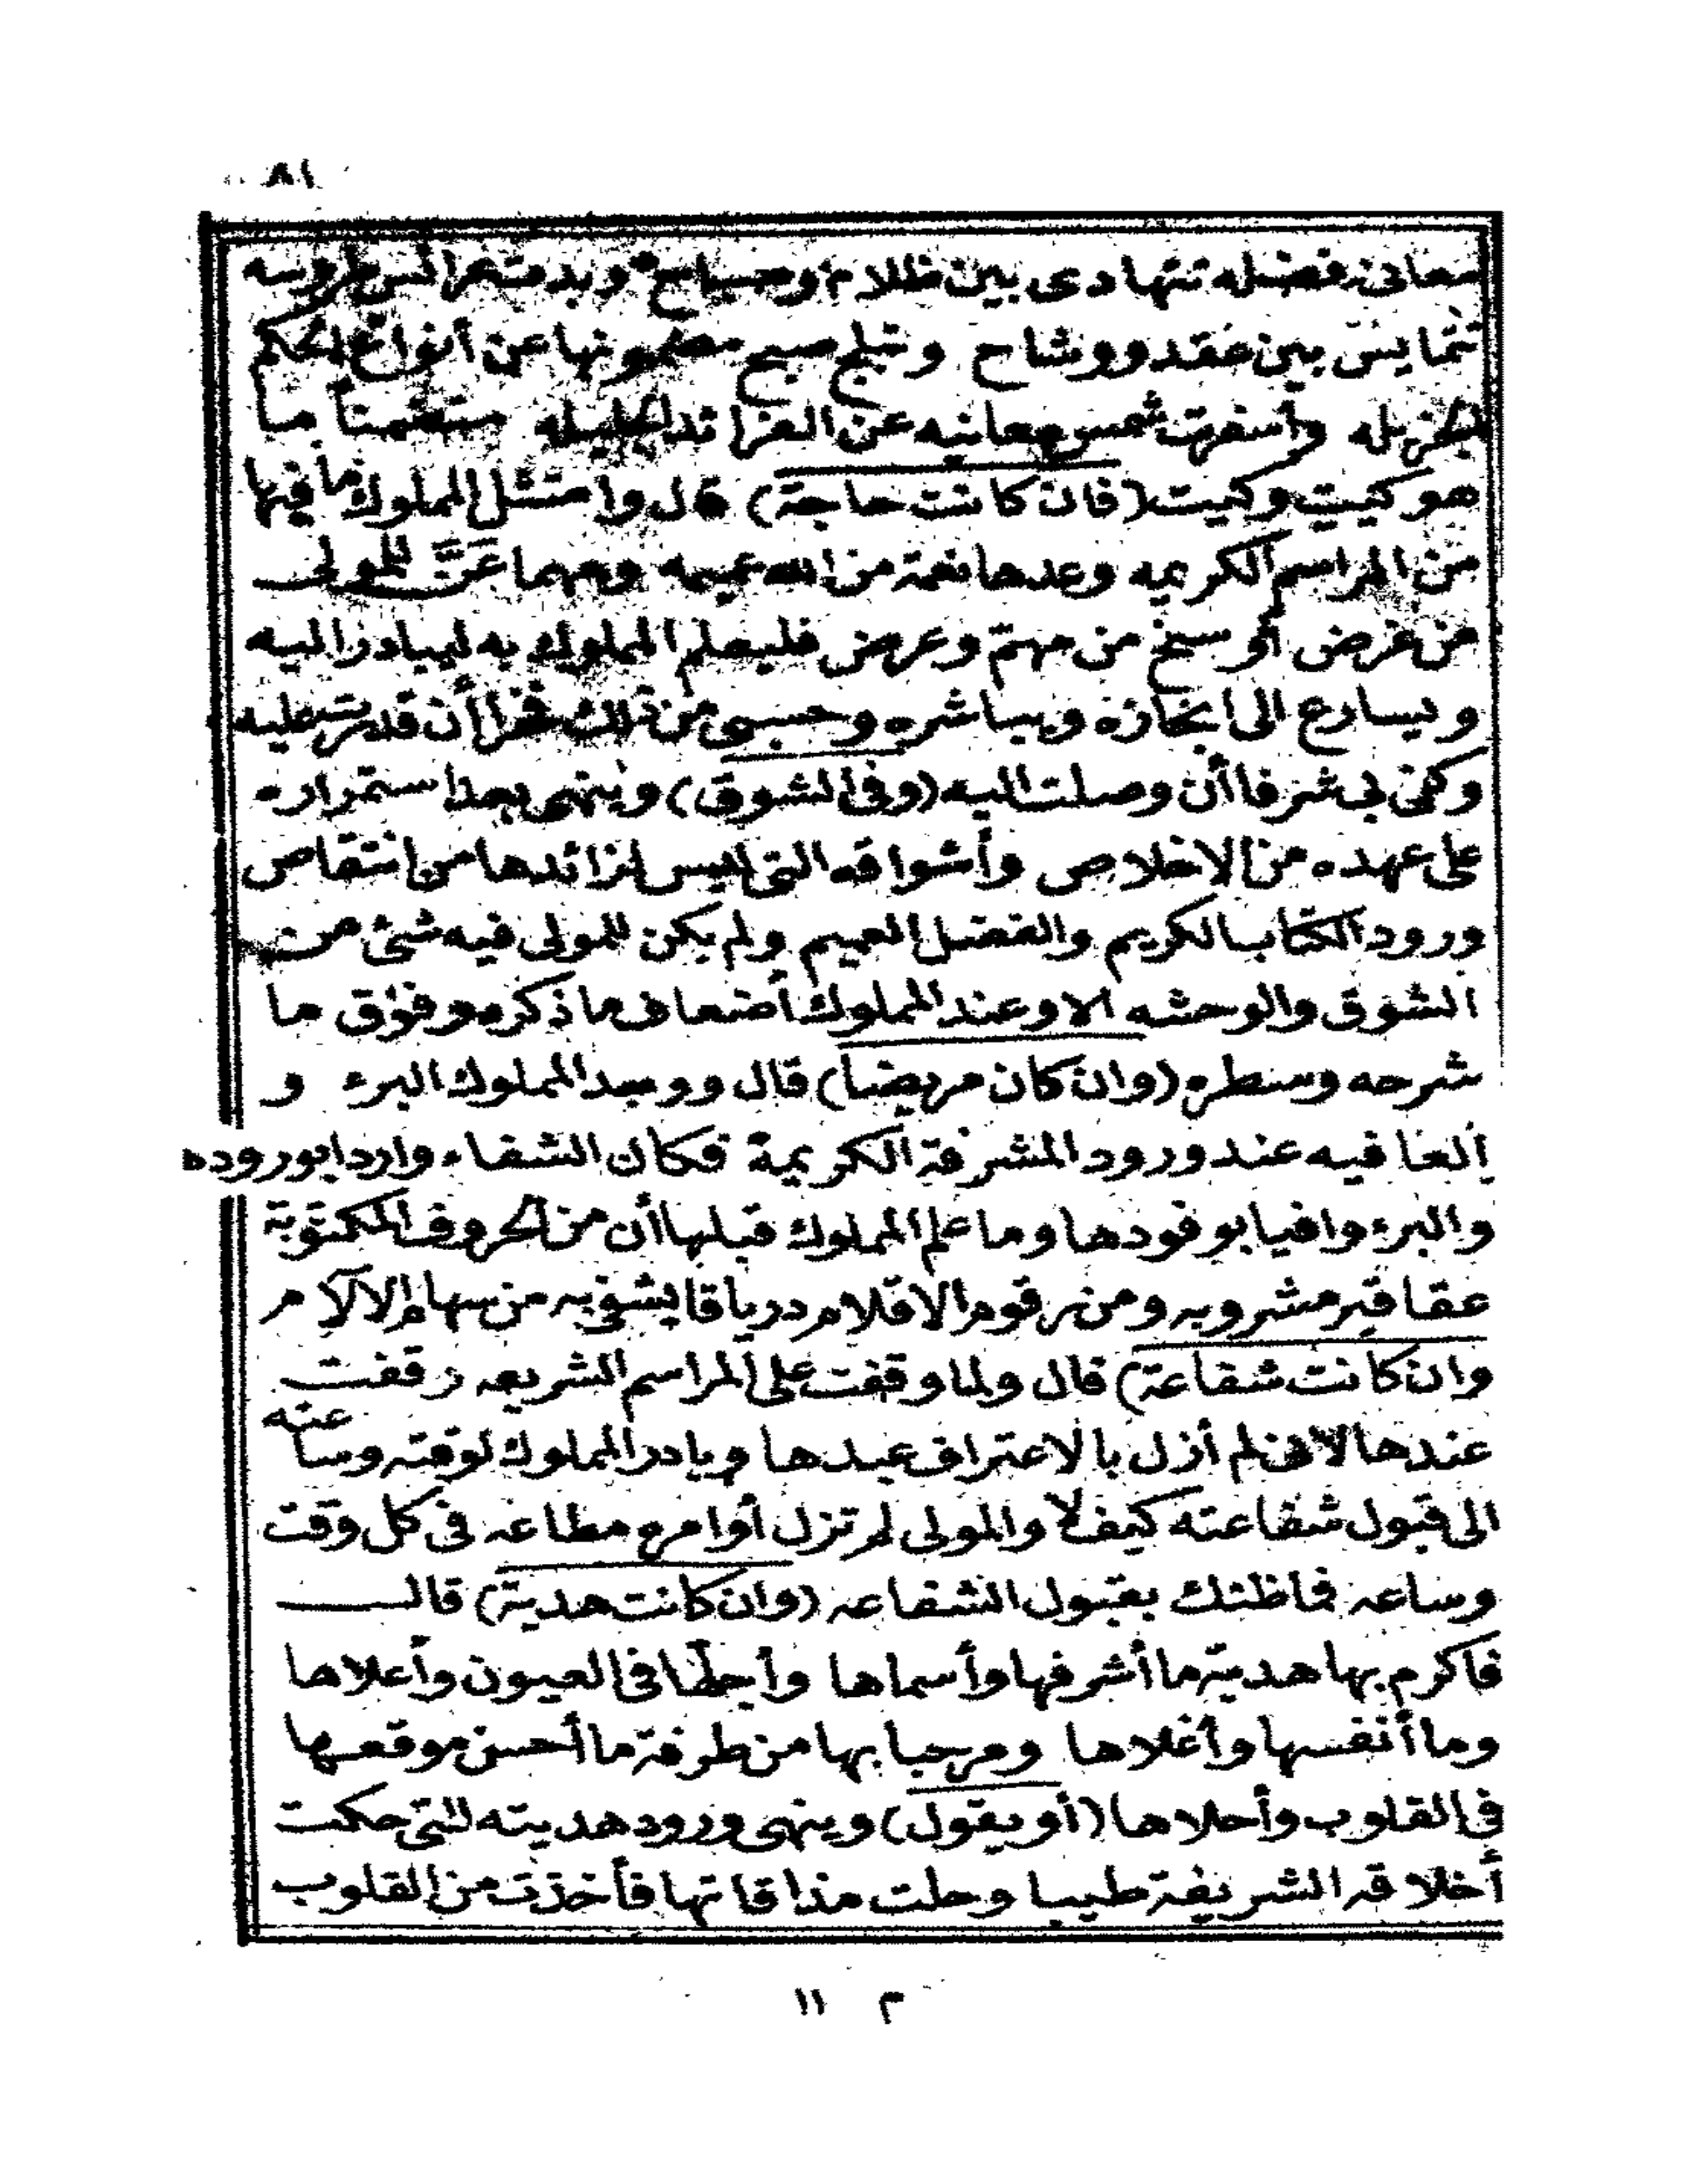 ٨١
معاني فضله تتهادى بين ظلام وصباح وبدت عرائس طروسه
تتمايس بين عقد ووشاح وتبلج صبح مضمونها عن أنواع الحكم
الجزيله وأسفرت شمس معانيه عن الفرائد الجليله متضمنا ما
هو كيت وكيت (فان كانت حاجة) قال وامتثل المملوك ما فيها
من المراسم الكريمه وعدها نعمة من الله عميمه ومهما عَنَّ للمولى
من غرض أو سنح من مهمّ وعرض فليعلم المملوك به ليبادر اليه
ويسارع الى انجازه ويباشره وحسبى من ذلك فخرا أن قدمت عليه
وكفى بى شرفا أن وصلت اليه (وفى الشوق) وينهى بعد استمراره
على عهده من الاخلاص وأشواقه التى ليس لزائدها من انتقاص
ورود الكتاب الكريم والفضل العميم ولم يكن للمولى فيه شئ من
الشوق والوحشه الا وعند المملوك أضعاف ما ذكره وفوق ما
شرحه وسطره (وان كان مريضا) قال ووجد المملوك البرء و
العافيه عند ورود المشرفة الكريمة فكان الشفاء واردا بوروده
والبرء وافيا بوفودها وما علم المملوك قبلها أن من الحروف المكتوبة
عقاقير مشروبه ومن رقوم الاقلام درياقا يشفى به من سهام الالآم
وان كانت شفاعة) قال ولما وقفت على المراسم الشريعه وقفت
عندها لاننى لم أزل بالاعتراف عبدها وبادر المملوك لوقته وساعته
الى قبول شفاعته كيف لا والمولى لم تزل أوامره مطاعه فى كل وقت
وساعه فما ظنك بقبول الشفاعه (وان كانت هدية) قال
فاكرم بها هدية ما أشرفها وأسماها وأجلها فى العيون وأعلاها
وما أنفسها وأغلاها ومرحبا بها من طرفة ما أحسن موقعها
فى القلوب وأحلاها (أو يقول) وينهى ورود هديته التى حكت
أخلاقه الشريفة طيبا وحلت مذاقاتها فأخذت من القلوب
م ١١